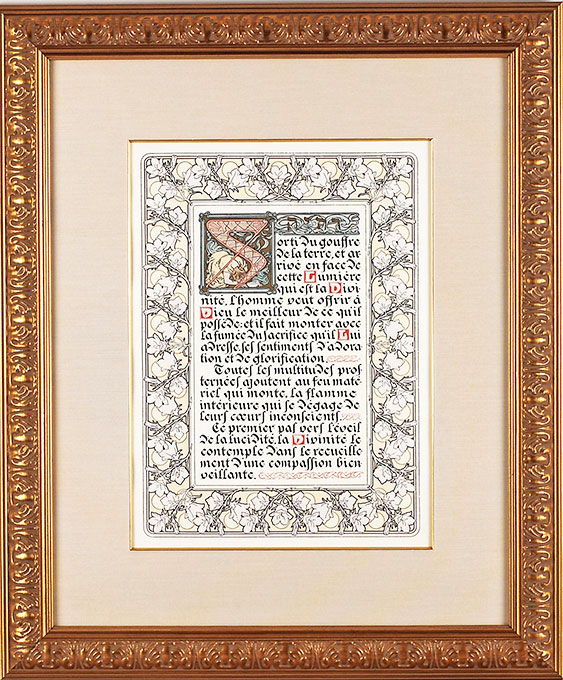 Sorti du gouffre
de la terre, et ar
rivé en face de
cette Lumière
qui est la Divi
nité, l'homme veut offrir à
Dieu le meilleur de ce qu'il
possède: et il fait monter avec
la fumée du sacrifice qu'il Lui
adresse, ses sentiments d'adora
tion et de glorification.
Toutes les multitudes pros
ternées ajoutent au feu maté
riel qui monte, la flamme
intérieure qui se dégage de
leurs cœurs inconscients.
Ce premier pas vers l'éveil
de la lucidité, la Divinité le
contemple dans le recueille
ment d'une compassion bien
veillante.